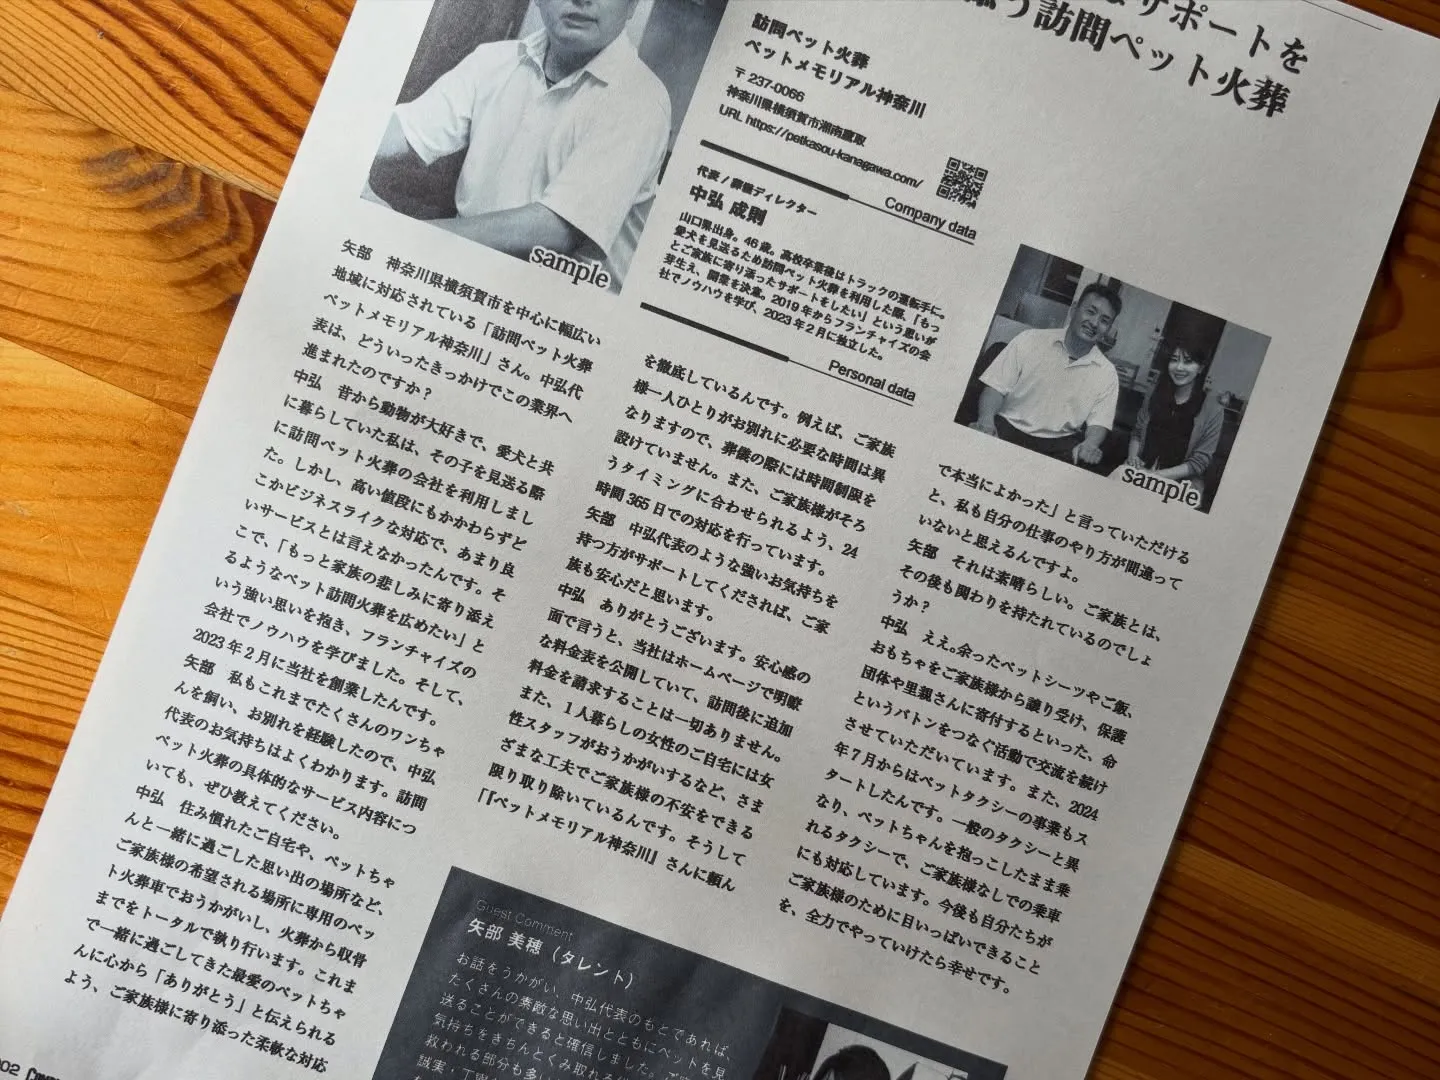 サポートを
う訪問ペット火葬
訪問ペット火葬
ペットメモリアル神奈川
〒237-0066
神奈川県横須賀市湘南鷹取
URL https://petkasou-kanagawa.com/
Company data
代表/葬儀ディレクター
中弘 成則
山口県出身。46歳。高校卒業後はトラックの運転手に。
愛犬を見送るため訪問ペット火葬を利用した際、「もっ
とご家族に寄り添ったサポートをしたい」という思いが
芽生え、開業を決意。2019年からフランチャイズの会
社でノウハウを学び、2023年2月に独立した。
Personal data
sample
矢部 神奈川県横須賀市を中心に幅広い
地域に対応されている「訪問ペット火葬
ペットメモリアル神奈川」さん。中弘代
表は、どういったきっかけでこの業界へ
進まれたのですか?
中弘 昔から動物が大好きで、愛犬と共
に暮らしていた私は、その子を見送る際
に訪問ペット火葬の会社を利用しまし
た。しかし、高い値段にもかかわらずど
こかビジネスライクな対応で、あまり良
いサービスとは言えなかったんです。そ
こで、「もっと家族の悲しみに寄り添え
るようなペット訪問火葬を広めたい」と
いう強い思いを抱き、フランチャイズの
会社でノウハウを学びました。そして、
2023年2月に当社を創業したんです。
矢部 私もこれまでたくさんのワンちゃ
んを飼い、お別れを経験したので、中弘
代表のお気持ちはよくわかります。訪問
ペット火葬の具体的なサービス内容につ
いても、ぜひ教えてください。
中弘 住み慣れたご自宅や、ペットちゃ
んと一緒に過ごした思い出の場所など、
ご家族様の希望される場所に専用のペッ
ト火葬車でおうかがいし、火葬から収骨
までをトータルで執り行います。これま
で一緒に過ごしてきた最愛のペットちゃ
んに心から「ありがとう」と伝えられる
よう、ご家族様に寄り添った柔軟な対応
を徹底しているんです。例えば、ご家族
様一人ひとりがお別れに必要な時間は異
なりますので、葬儀の際には時間制限を
設けていません。また、ご家族様がそろ
うタイミングに合わせられるよう、24
時間365日での対応を行っています。
矢部 中弘代表のような強いお気持ちを
持つ方がサポートしてくだされば、ご家
族も安心だと思います。
中弘 ありがとうございます。安心感の
面で言うと、当社はホームページで明瞭
な料金表を公開していて、訪問後に追加
料金を請求することは一切ありません。
また、1人暮らしの女性のご自宅には女
性スタッフがおうかがいするなど、さま
ざまな工夫でご家族様の不安をできる
限り取り除いているんです。そうして
「『ペットメモリアル神奈川』さんに頼ん
sample
で本当によかった」と言っていただける
と、私も自分の仕事のやり方が間違って
いないと思えるんですよ。
矢部 それは素晴らしい。ご家族とは、
その後も関わりを持たれているのでしょ
うか?
中弘 ええ。余ったペットシーツやご飯、
おもちゃをご家族様から譲り受け、保護
団体や里親さんに寄付するといった、命
というバトンをつなぐ活動で交流を続け
させていただいています。また、2024
年7月からはペットタクシーの事業もス
タートしたんです。一般のタクシーと異
なり、ペットちゃんを抱っこしたまま乗
れるタクシーで、ご家族様なしでの乗車
にも対応しています。今後も自分たちが
ご家族様のために目いっぱいできること
を、全力でやっていけたら幸せです。
Guest Comment
矢部 美穂(タレント)
お話をうかがい、中弘代表のもとであれば、
たくさんの素敵な思い出とともにペットを見
送ることができると確信しました。
気持ちをきちんとくみ取れる
救われる部分も多い
誠実・丁寧